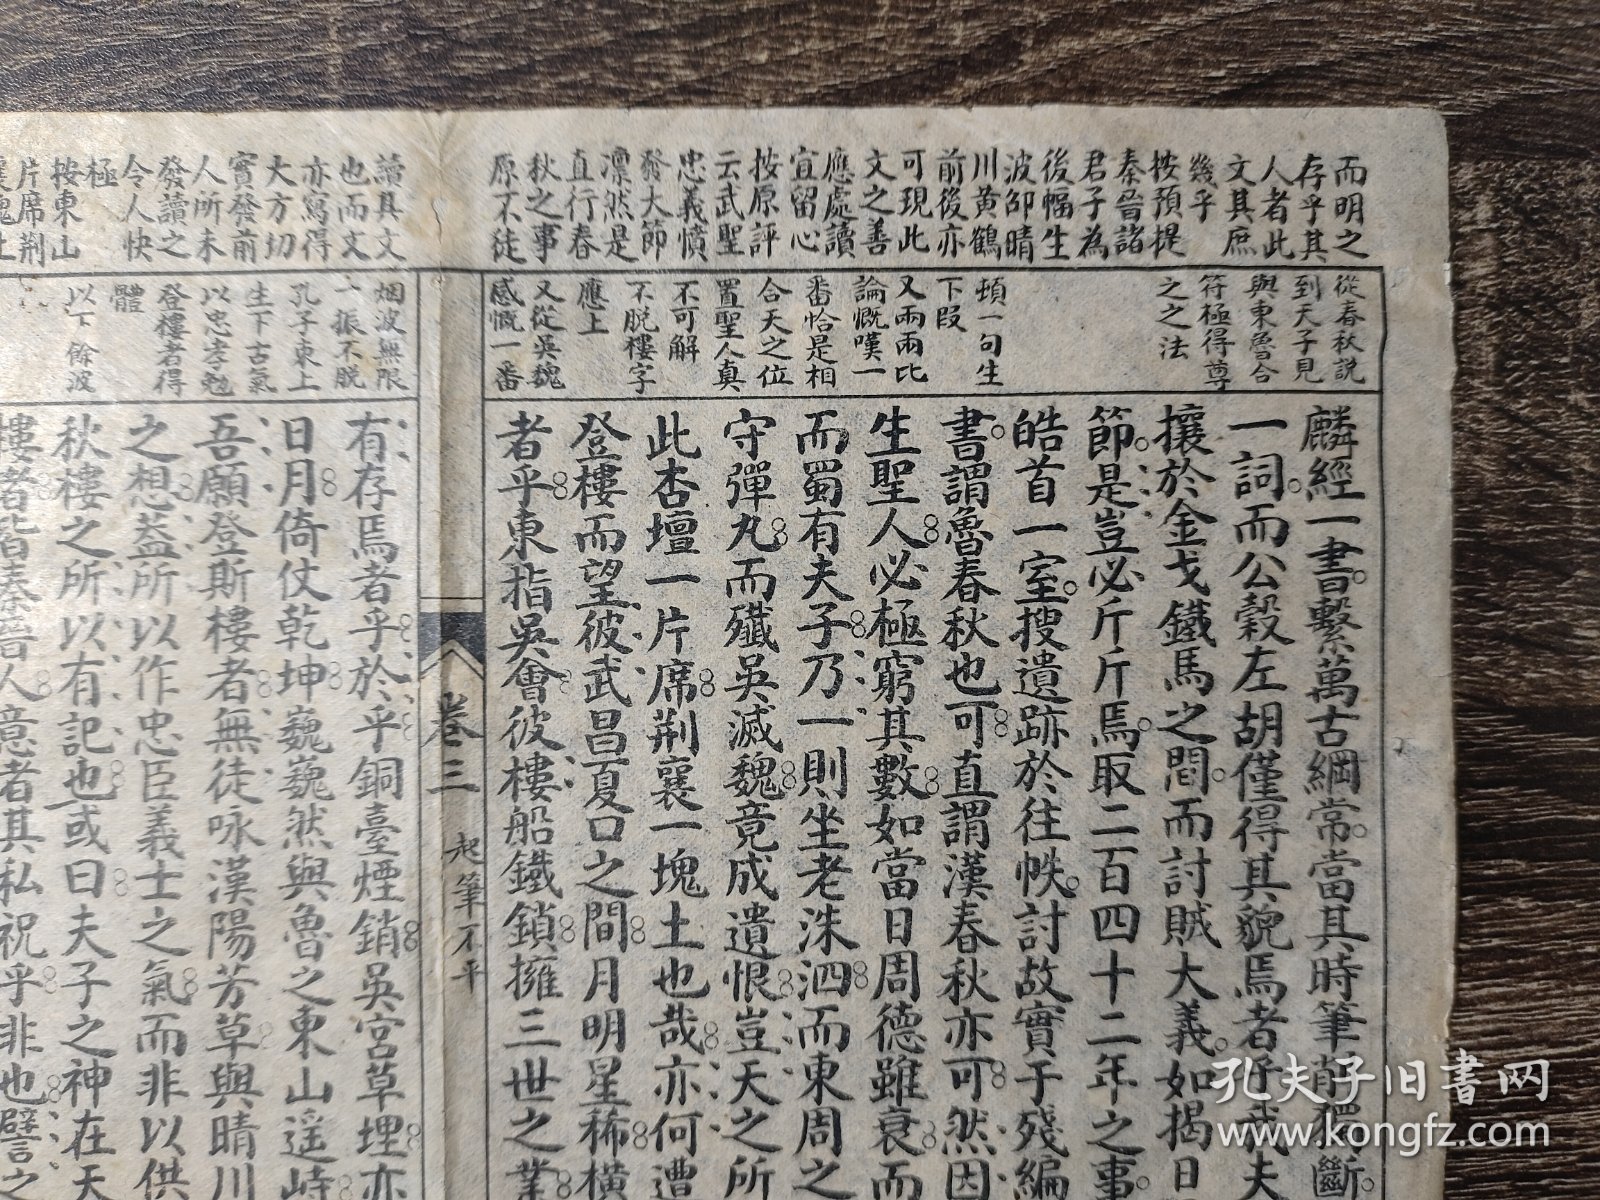 而明之
存乎其
人者此
文其庶
幾乎
按預提
秦晉諸
君子為
後幅生
波卻晴
川黃鶴
前後亦
可現此
文之善
應處讀
宜留心
按原評
云武聖
忠義憤
發大節
凜然是
直行春
秋之事
原不徒
讀其文
也而文
亦寫得
大方切
實發前
人所未
發讀之
令人快
極
按東山
片席荆
襄塊土
從春秋說
到天子見
與東魯合
符極得尊
之之法
頓一句生
下段
又兩兩比
論慨嘆一
番恰是相
合天之位
置聖人真
不可解
不脫樓字
應上
又從吳魏
感慨一番
烟波無限
一振不脫
孔子東上
生下古氣
以忠孝勉
登樓者得
體
以下餘波
麟經一書繫萬古綱常當其時筆削獨斷
一詞而公穀左胡僅得其貌焉者乎武夫
攘於金戈鐵馬之間而討賊大義如揭日
節是豈必斤斤焉取二百四十二年之事
皓首一室搜遺跡於往帙討故實于殘編
書謂魯春秋也可直謂漢春秋亦可然因
生聖人必極窮其數如當日周德雖衰而
而蜀有夫子乃一則坐老洙泗而東周之
守彈丸而殲吳滅魏竟成遺恨豈天之所
此杏壇一片席荆襄一塊土也哉亦何遭
登樓而望彼武昌夏口之間月明星稀橫
者乎東指吳會彼樓船鐵鎖擁三世之業
卷三 起筆不平
有存焉者乎於乎銅臺煙銷吳宮草埋亦
日月倚仗乾坤巍巍然與魯之東山遥峙
吾願登斯樓者無徒咏漢陽芳草與晴川
之想葢所以作忠臣義士之氣而非以供
秋樓之所以有記也或曰夫子之神在天
樓者皆秦晉人意者其私祝乎非也譬之
孔夫子旧書网
www.kongfz.com